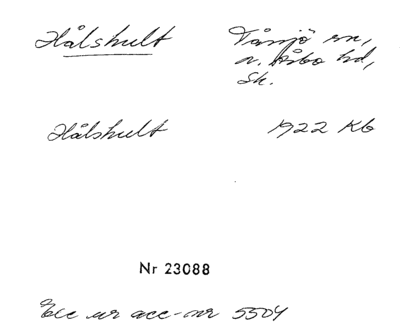 Hålshult
Tåsjö sn,
n. Åsbo hd,
Sk.
Hålshult
1922 KG
Nr 23088
Exc ur acc-nr 5504